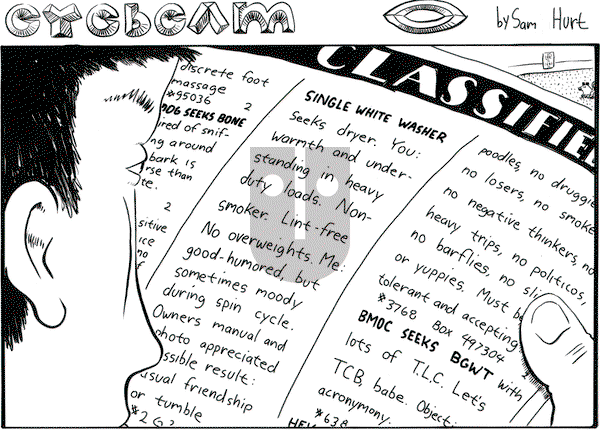 eyebeam
by Sam Hurt
CLASSIFIE
discrete foot
massage 2
*95036
SEEKS BONE
ired of snif-
ng around
bark is
rse than
te.
2
sitive
ice
no
of
SINGLE WHITE WASHER
Seeks dryer. You:
Warmth and under-
standing in heavy
duty loads. Non-
smoker. Lint-free
No overweights. Me:
good-humored, but
sometimes moody
during spin cycle.
Owners manual and
photo appreciated
ssible result:
sual friendship
or tumble
*2
poodles, no druggie
no losers, no smoke
no negative thinkers, no
heavy trips, no politicos,
no barflies, no sli
or yuppies. Must b
tolerant and accepting
*3768 Box 497304
BMOC SEEKS BGWT with
lots of T.L.C. Let's
TCB, babe. Object:
acronymony.
*638